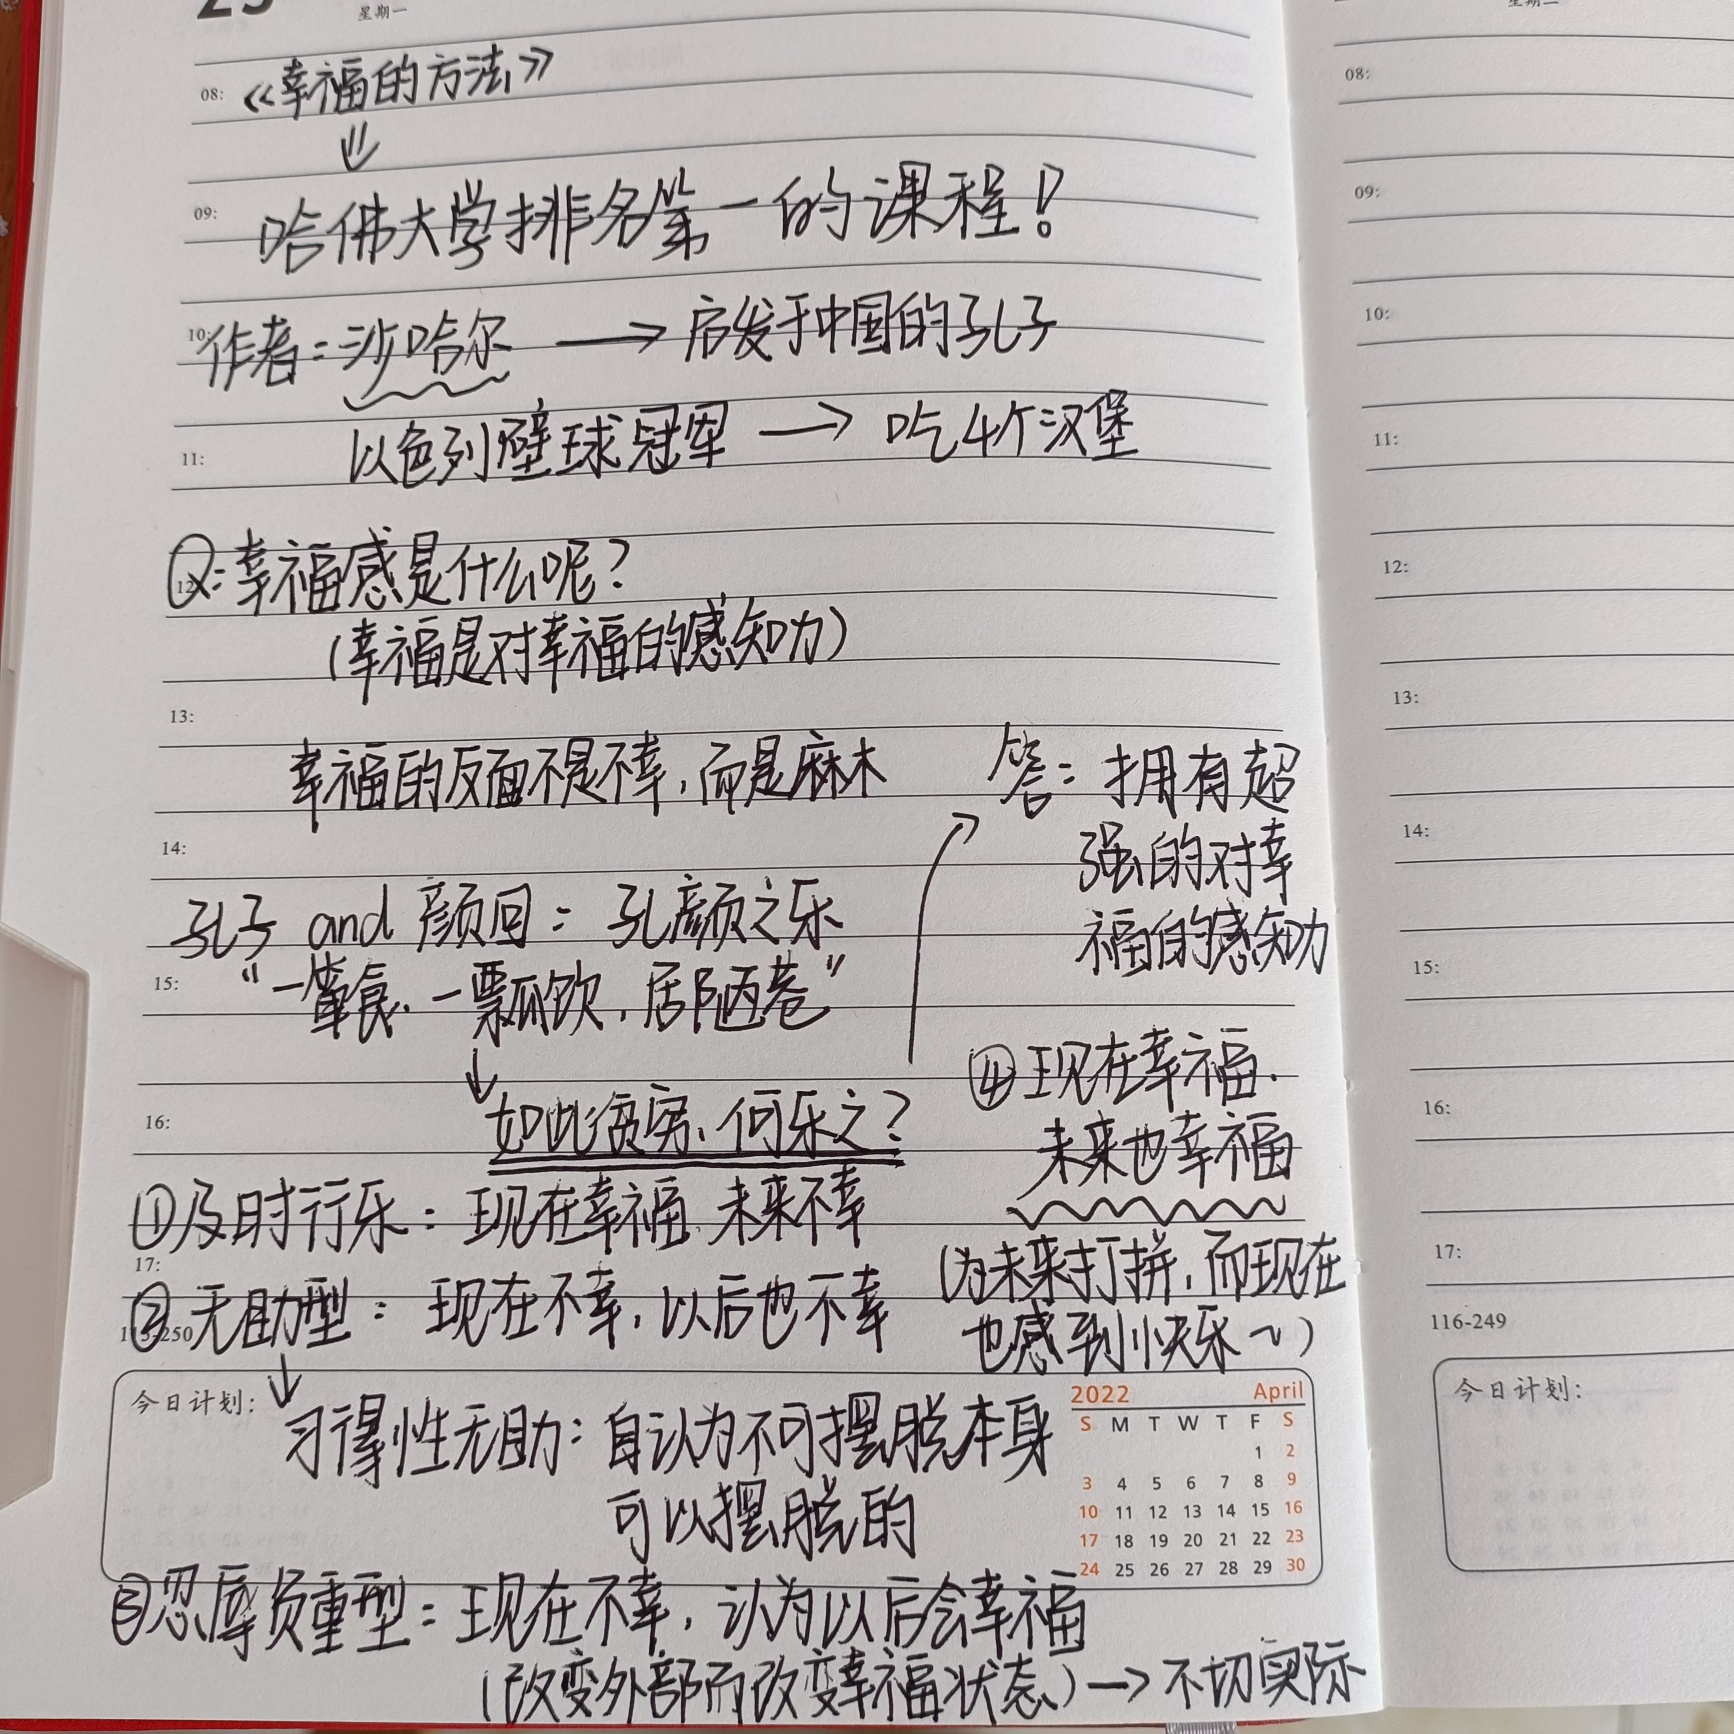 星期一
08: 《幸福的方法》
09: 哈佛大学排名第一的课程!
10: 作者:沙哈尔 → 启发于中国的孔子
11: 以色列壁球冠军 → 吃4个汉堡
12: Q:幸福感是什么呢?
(幸福是对幸福的感知力)
13:
幸福的反面不是不幸,而是麻木
14:
孔子 and 颜回:孔颜之乐
15: “一箪食.一瓢饮,居陋巷”
↓
16: 如此贫穷,何乐之?
答:拥有超
强的对幸
福的感知力
①及时行乐:现在幸福.未来不幸
17:
②无助型:现在不幸,以后也不幸
115-250
↓
今日计划:
习得性无助:自认为不可摆脱本身
可以摆脱的
③忍辱负重型:现在不幸,认为以后会幸福
(改变外部而改变幸福状态) → 不切实际
④现在幸福.
未来也幸福
(为未来打拼,而现在
也感到快乐~)
2022 April
S M T W T F S
1 2
3 4 5 6 7 8 9
10 11 12 13 14 15 16
17 18 19 20 21 22 23
24 25 26 27 28 29 30
08:
09:
10:
11:
12:
13:
14:
15:
16:
17:
116-249
今日计划: